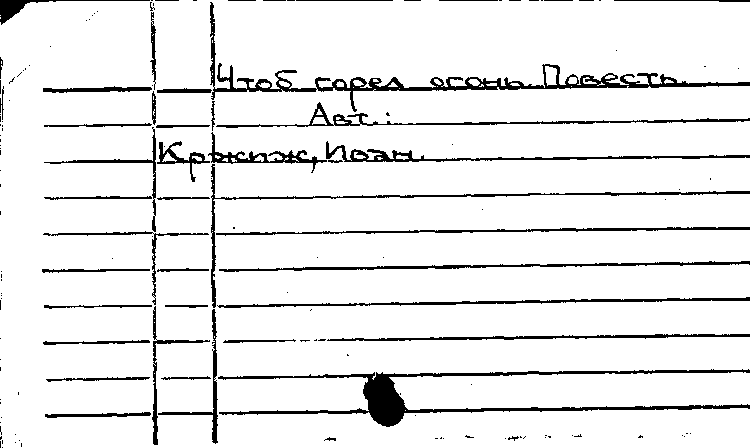 Чтоб горел огонь. Повесть.
Авт.:
Кржиж, Иоан.